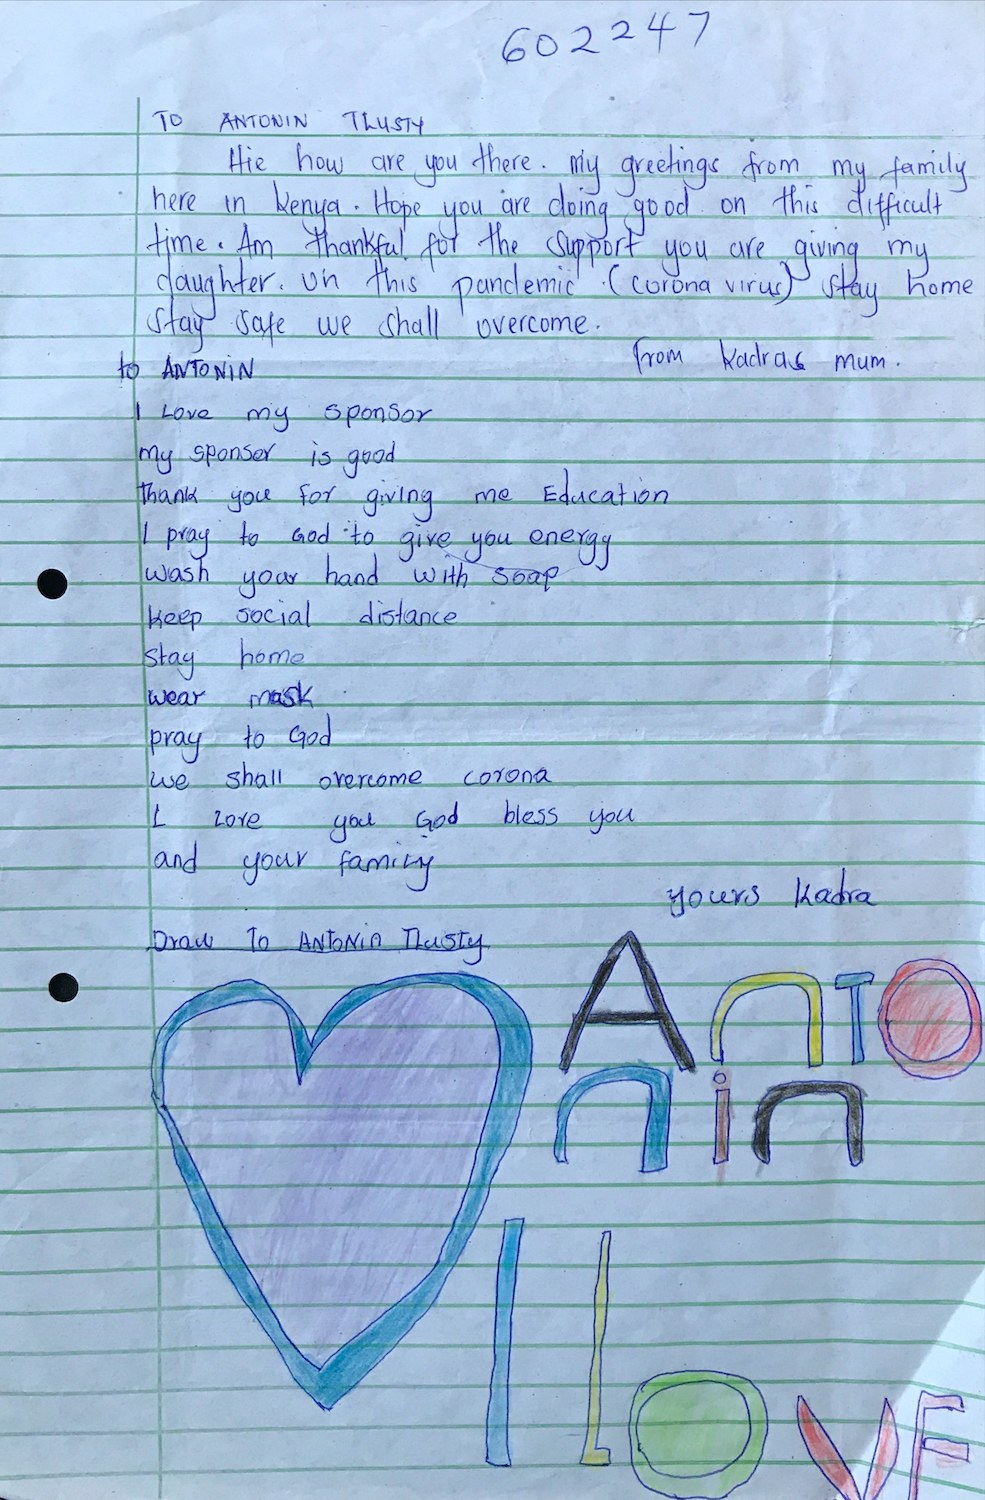 602247
TO ANTONIN TLUSTY
Hie how are you there. My greetings from my family
here in Kenya. Hope you are doing good on this difficult
time. Am thankful for the support you are giving my
daughter. On this pandemic (corona virus) stay home
stay safe we shall overcome.
from Kadras mum.
to ANTONIN
I Love my sponsor
my sponser is good
thank you for giving me Education
I pray to God to give you energy
wash your hand with soap
keep social distance
stay home
wear mask
pray to God
we shall overcome corona
I love you God bless you
and your family
yours Kadra
Draw To ANTONIN TLUSTY
AnTO
nin
I LOVE